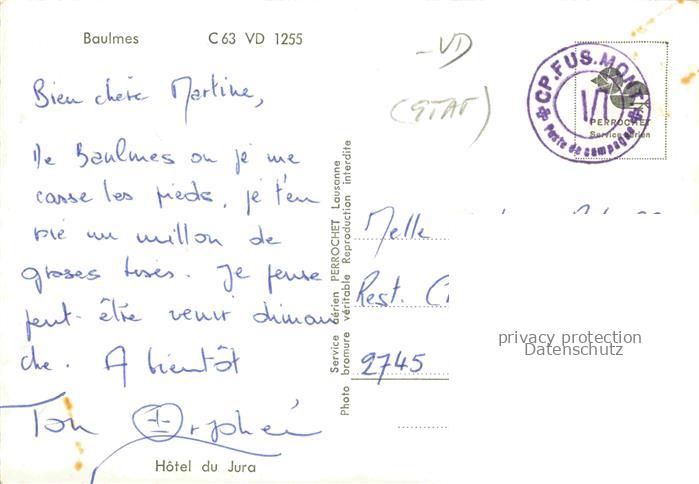 Baulmes C 63 VD 1255
VD
(STAT)
CP. FUS. MONT
I/1
Poste de campagne
PERROCHET
Service aérien
Bien chère Martine,
De Baulmes ou je me
casse les pieds, je t'en
voie un millon de
groses bises. Je pense
peut-être venir diman
che. A bientôt
Ton
Service aérien PERROCHET Lausanne
Photo bromure véritable Reproduction interdite
Melle
Rest.
2745
privacy protection
Datenschutz
Hôtel du Jura